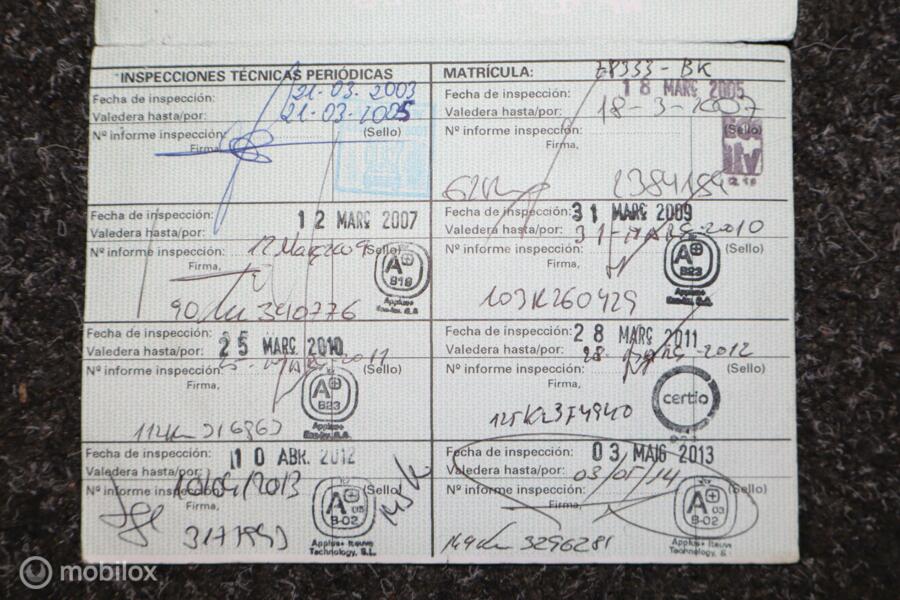 INSPECCIONES TÉCNICAS PERIÓDICAS
Fecha de inspección: 21-03-2003
Valedera hasta/por: 21-03-2005
Nº informe inspección: (Sello)
Firma,
MATRÍCULA: -BK
Fecha de inspección: 18 MARÇ 2005
Valedera hasta/por: 18-3-2007
Nº informe inspección: (Sello)
Firma,
itv
Fecha de inspección: 12 MARÇ 2007
Valedera hasta/por:
Nº informe inspección: (Sello)
Firma,
A+
B18
Applus+
90 340776
Fecha de inspección: 31 MARÇ 2009
Valedera hasta/por: 31-MARÇ-2010
Nº informe inspección: (Sello)
Firma,
A+
B23
Applus+
103K 260429
Fecha de inspección: 25 MARÇ 2010
Valedera hasta/por: 2011
Nº informe inspección: (Sello)
Firma,
A+
B23
Applus+
114Km 316863
Fecha de inspección: 28 MARÇ 2011
Valedera hasta/por: 28-MARÇ-2012
Nº informe inspección: (Sello)
Firma,
certio
Fecha de inspección: 10 ABR. 2012
Valedera hasta/por:
Nº informe inspección: 10/04/2013 (Sello)
Firma,
A+
05
B-02
145K
Applus+ Iteuve
Technology, S.L.
Fecha de inspección: 03 MAIG 2013
Valedera hasta/por: 03/05/14
Nº informe inspección: (Sello)
Firma,
A+
03
B-02
149Km 3296281
Applus+ Iteuve
Technology, S.
mobilox